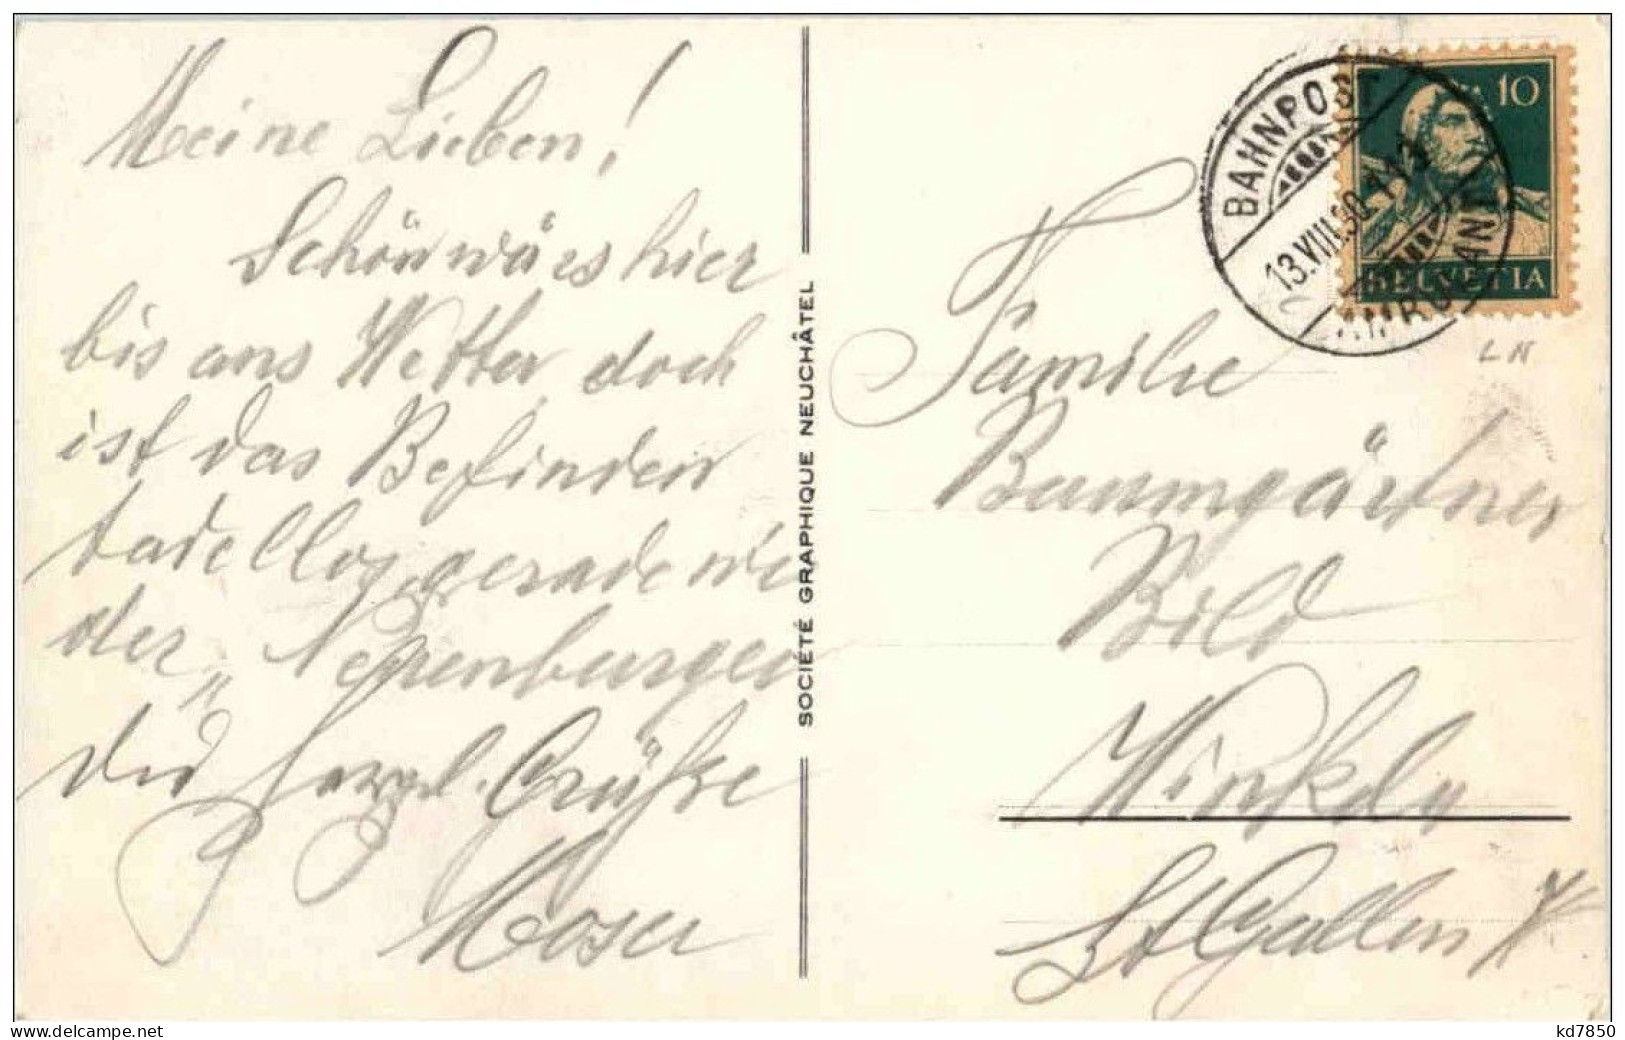 Meine Lieben!
Schön wärs hier
bis ans Wetter doch
ist das Befinden
tadellos, gerade wie
der „Neuenburger
herzl. Grüsse
Moser
SOCIÉTÉ GRAPHIQUE NEUCHÂTEL
BAHNPOST
13.VIII.30
AMBULANT
10
HELVETIA
LN
Familie
Baumgärtner
Bild
Winkeln
St Gallen
www.delcampe.net
kd7850